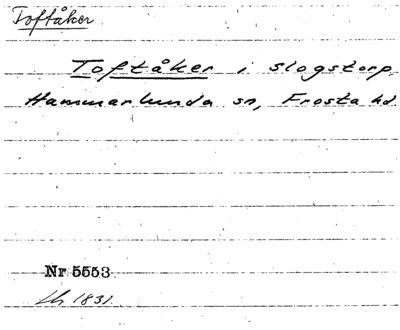 Toftåker
Toftåker i Slogstorp
Hammarlunda sn, Frosta hd
Nr 5553
1831